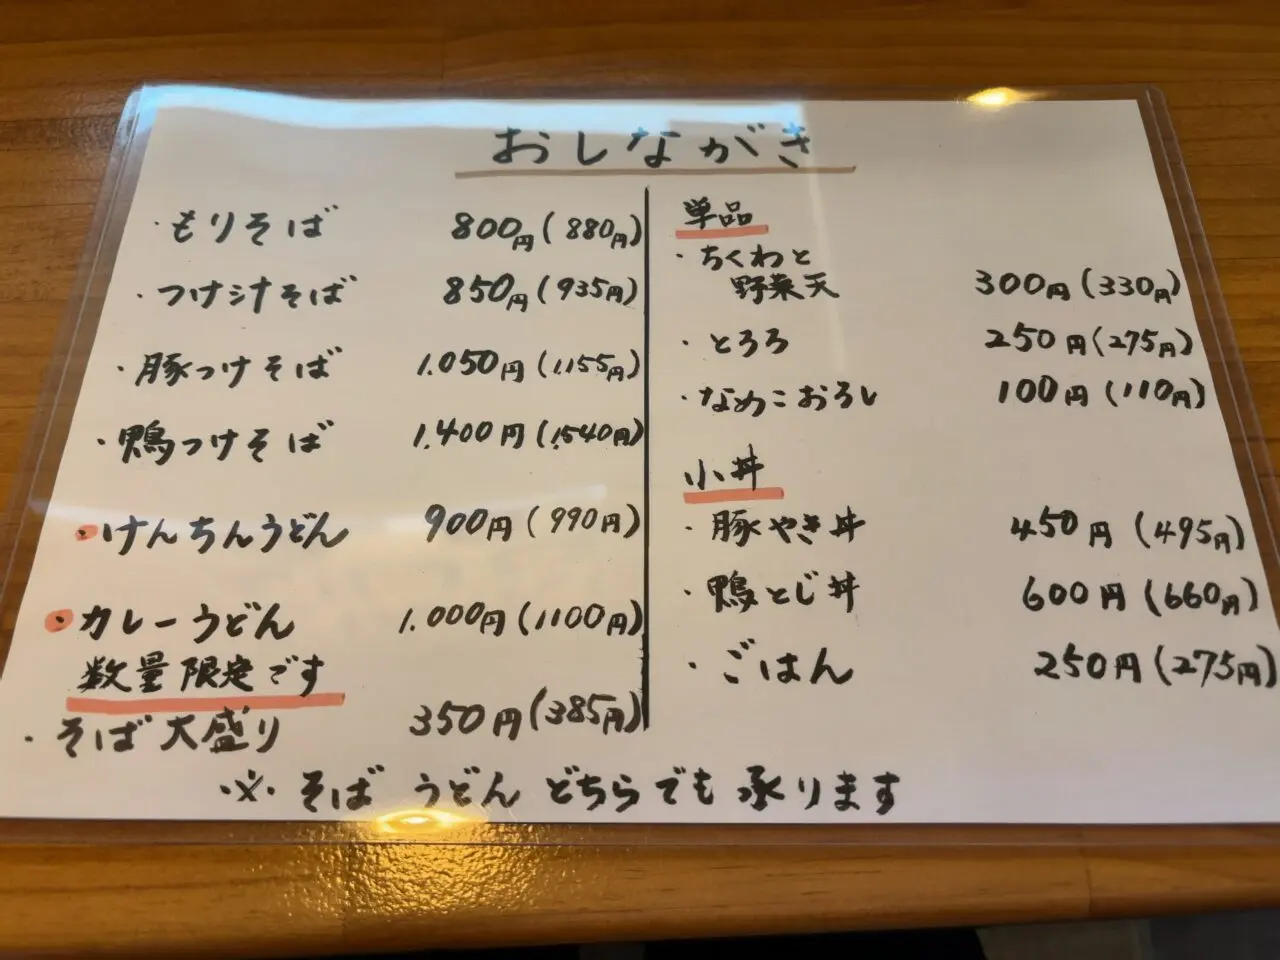 おしながき
・もりそば 800円(880円)
・つけ汁そば 850円(935円)
・豚つけそば 1.050円(1.155円)
・鴨つけそば 1.400円(1.540円)
・けんちんうどん 900円(990円)
・カレーうどん 1.000円(1100円)
数量限定です
・そば大盛り 350円(385円)
単品
・ちくわと
野菜天 300円(330円)
・とろろ 250円(275円)
・なめこおろし 100円(110円)
小丼
・豚やき丼 450円(495円)
・鴨とじ丼 600円(660円)
・ごはん 250円(275円)
※そば うどん どちらでも 承ります